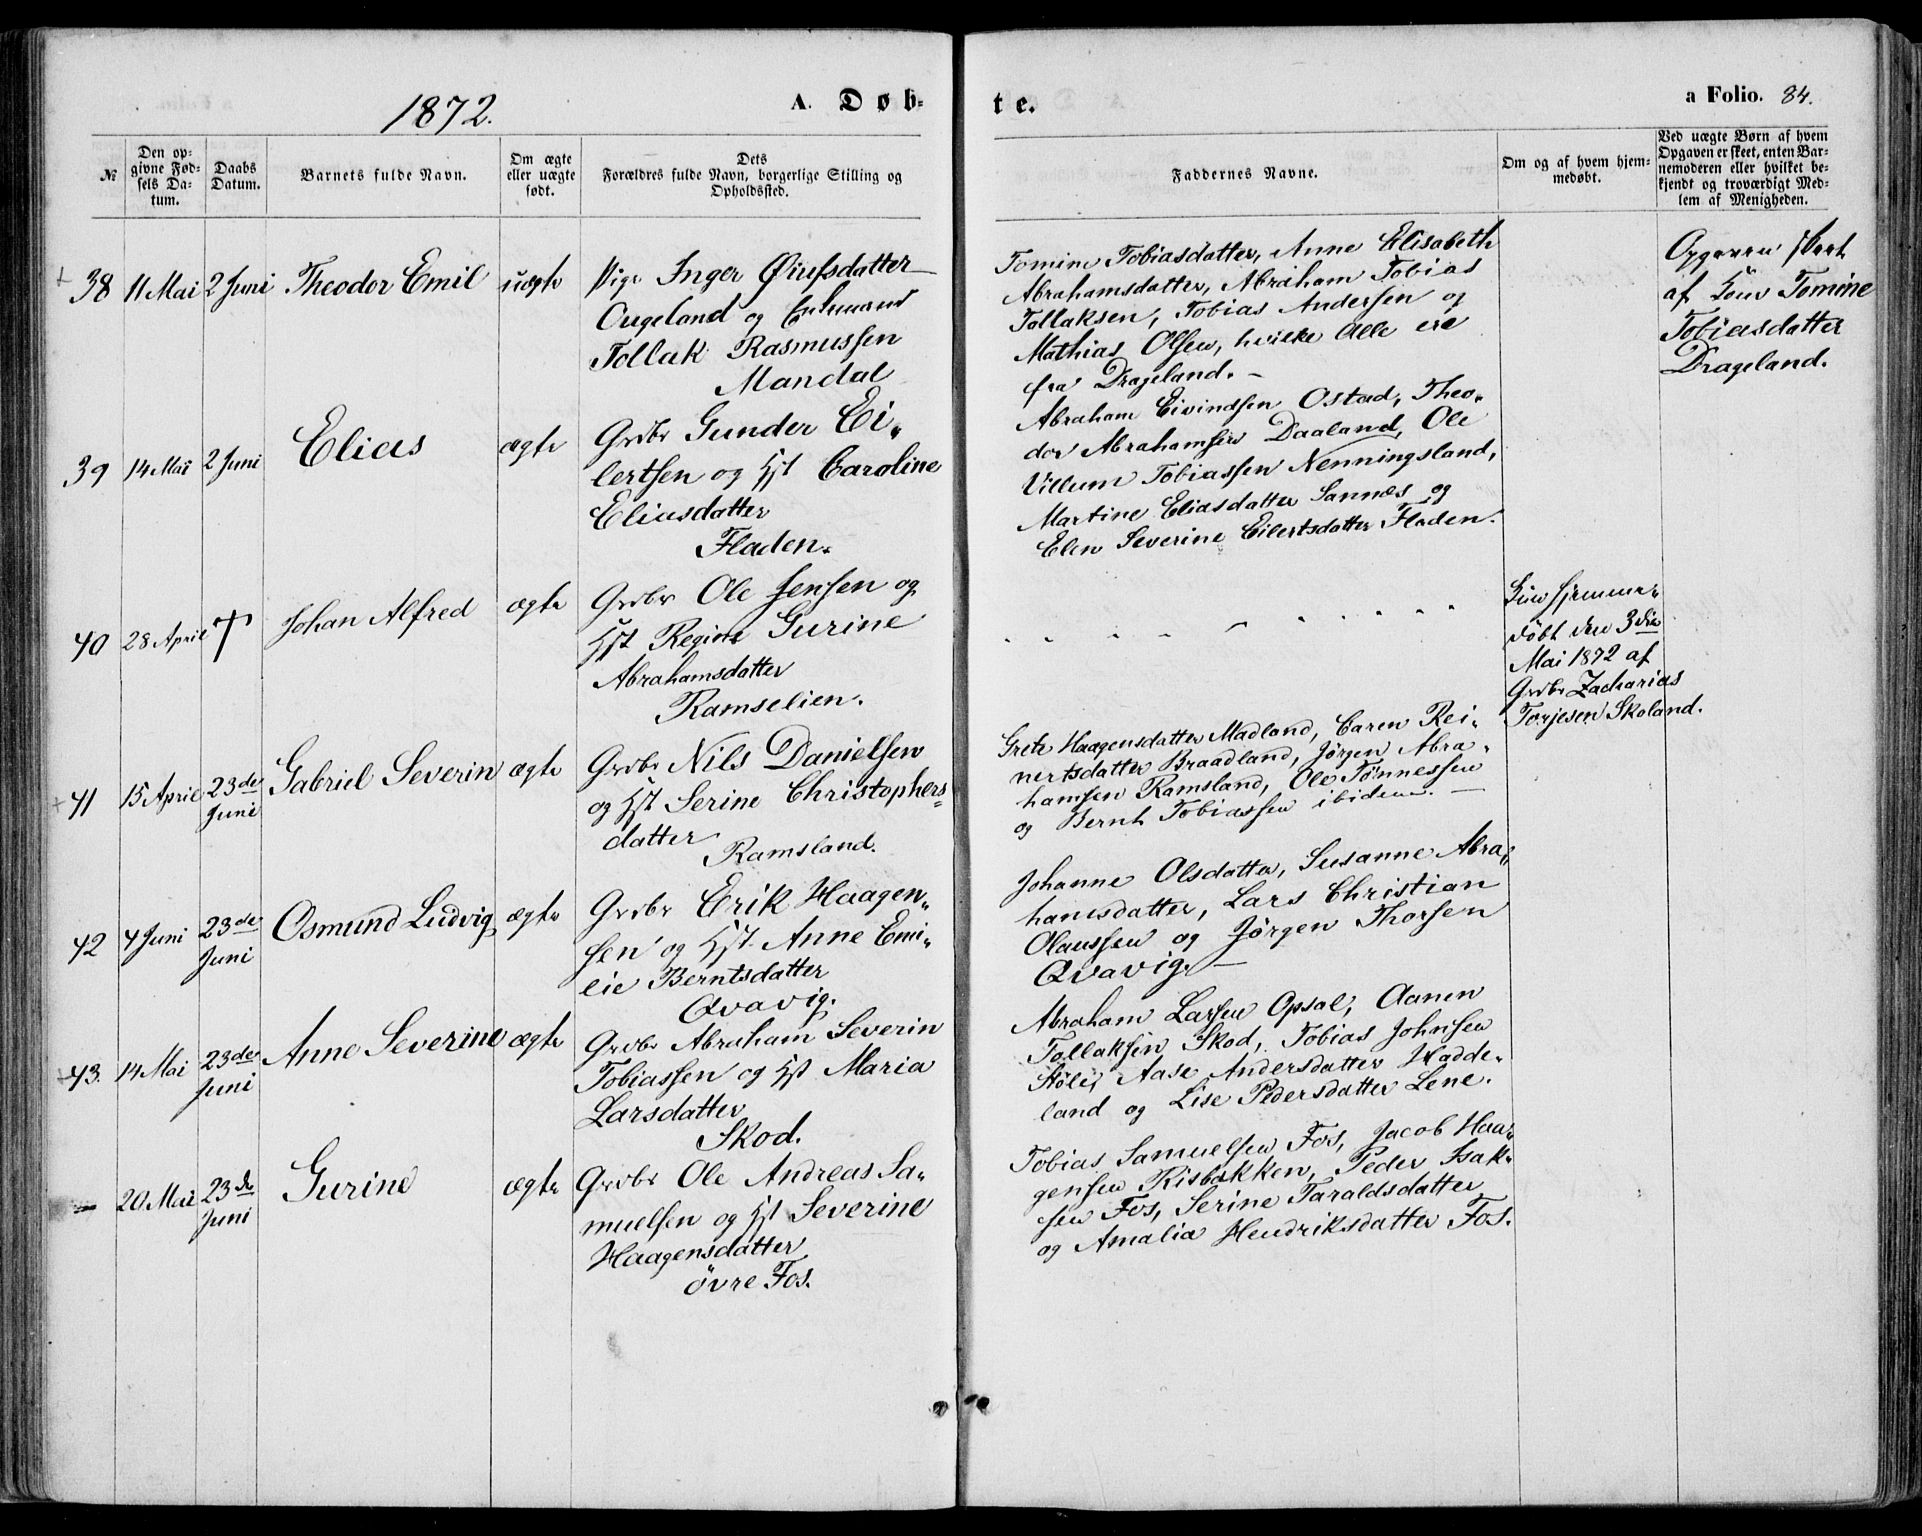 1872.
A. Døb-
te.
a Folio. 84.
№
Den op-
givne Fød-
sels Da-
tum.
Daabs
Datum.
Barnets fulde Navn.
Om ægte
eller uægte
født.
Dets
Forældres fulde Navn, borgerlige Stilling og
Opholdssted.
Faddernes Navne.
Om og af hvem hjem-
medøbt.
Ved uægte Børn af hvem
Opgaven er skeet, enten Bar-
nemoderen eller hvilket be-
kjendt og troværdigt Med-
lem af Menigheden.
+ 38
11 Mai
2 Juni
Theodor Emil
uægte
Pige Inger
og
Tollak Rasmussen
Mandal
Tomine Tobiasdatter, Anne Elisabeth
Abrahamsdatter, Abraham Tobias
Tollaksen, Tobias Andersen og
Mathias Olsen, hvilke Alle ere
fra Drageland. -
Opgaven skeet
af Tomine
Tobiasdatter
Drageland.
39
14 Mai
2 Juni
Elias
ægte
Grdbr Gunder Ei-
lertsen og Hst Caroline
Eliasdatter
Fladen.
Abraham Eivindsen Ostad, Theo-
dor Abrahamsen Daaland, Ole
Villum Tobiassen Nenningsland,
Martine Eliasdatter Sannes og
Elen Severine Eilertsdatter Fladen.
40
28 April
†
Johan Alfred
ægte
Grdbr Ole Jensen og
Hst Regine Gurine
Abrahamsdatter
Ramselien.
hjemme-
døbt den 3die
Mai 1872 af
Grdbr Zacharias
Torjesen Skoland.
+ 41
15 April
23de
Juni
Gabriel Severin
ægte
Grdbr Nils Danielsen
og Hst Serine Christophers-
datter
Ramsland.
Grete Haagensdatter Madland, Caren Rei-
nertsdatter Braadland, Jørgen Abra-
hamsen Ramsland, Ole Tønnessen
og Bernt Tobiassen ibidem. -
42
4 Juni
23de
Juni
Osmund Ludvig
ægte
Grdbr Erik Haagen-
sen og Hst. Anne Emi-
lie Berntsdatter
Qvavig.
Johanne Olsdatter, Susanne Abra-
hamsdatter, Lars Christian
Olaussen og Jørgen Thorsen
Qvavig. -
+ 43.
14 Mai
23de
Juni
Anne Severine
ægte
Grdbr Abraham Severin
Tobiassen og Hst Maria
Larsdatter
Skod.
Abraham Larsen Opsal, Aanen
Tollaksen Skod, Tobias Johnsen
Støle, Aase Andersdatter Hadde-
land og Lise Pedersdatter Lene.
20 Mai
23de
Juni
Gurine
ægte
Grdbr Ole Andreas Sa-
muelsen og Hst Severine
Haagensdatter
øvre Fos.
Tobias Samuelsen Fos, Jacob Haa-
gensen Risbakken, Peder Isak-
sen Fos, Serine Taraldsdatter
og Amalia Hendriksdatter Fos.